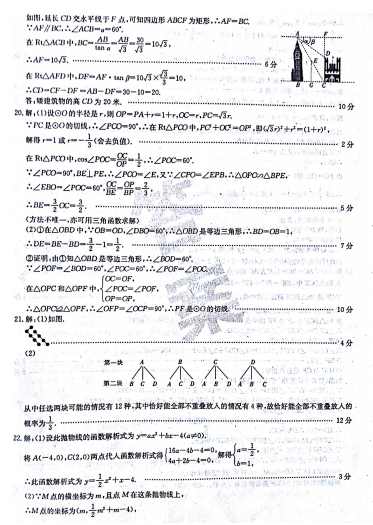 如图,延长 CD 交水平线于 F 点,可知四边形 ABCF 为矩形,∴AF=BC.
∵AF∥BC,∴∠ACB=α=60°.
在 Rt△ACB 中,BC=AB/tan α=AB/√3=30/√3=10√3,
∴AF=10√3. 6 分
在 Rt△AFD 中,DF=AF·tan β=10√3×√3/3=10,
∴CD=CF-DF=AB-DF=30-10=20.
答:矮建筑物的高 CD 为 20 米. 10 分
20. 解:(1)设⊙O 的半径是 r,则 OP=PA+r=1+r,OC=r,PC=√3r.
∵PC 是⊙O 的切线,∴∠PCO=90°,∴在 Rt△PCO 中,PC²+OC²=OP²,即(√3r)²+r²=(1+r)²,
解得 r=1 或 r=-1/3(舍去负值). 2 分
在 Rt△PCO 中,cos∠POC=OC/OP=1/2,∴∠POC=60°.
∵∠PCO=90°,BE⊥PE,∴∠PCO=∠E,又∵∠CPO=∠EPB,∴△OPC∽△BPE,
∴∠EBO=∠POC=60°,OC/BE=OP/BP=2/3,
∴BE=3/2 OC=3/2. 5 分
(方法不唯一,亦可用三角函数求解)
(2)①在△OBD 中,∵OB=OD,∠DBO=60°,∴△OBD 是等边三角形,∴BD=OB=1,
∴DE=BE-BD=3/2-1=1/2. 7 分
②证明:由①知△OBD 是等边三角形,∴∠BOD=60°.
∵∠POF=∠BOD=60°,∠POC=60°,∴∠POF=∠POC.
在△OPC 和△OPF 中,{OC=OF, ∠POC=∠POF, OP=OP,
∴△OPC≌△OPF,∴∠OFP=∠OCP=90°,∴PF 是⊙O 的切线. 10 分
21. 解:(1)如图.
4 分
(2)
第一块 A B C D
第二块 B C D A C D A B D A B C
从中任选两块可能的情况有 12 种,其中恰好能全部不重叠放入的情况有 4 种,故恰好能全部不重叠放入的
概率为1/3. 12 分
22. 解:(1)设此抛物线的函数解析式为 y=ax²+bx-4(a≠0).
将 A(-4,0),C(2,0)两点代入函数解析式得{16a-4b-4=0, 4a+2b-4=0, 解得{a=1/2, b=1,
∴此函数解析式为 y=1/2 x²+x-4. 3 分
(2)∵M 点的横坐标为 m,且点 M 在这条抛物线上,
∴M 点的坐标为(m,1/2 m²+m-4),
答案
A
F
α
β
D
E
B
G
C